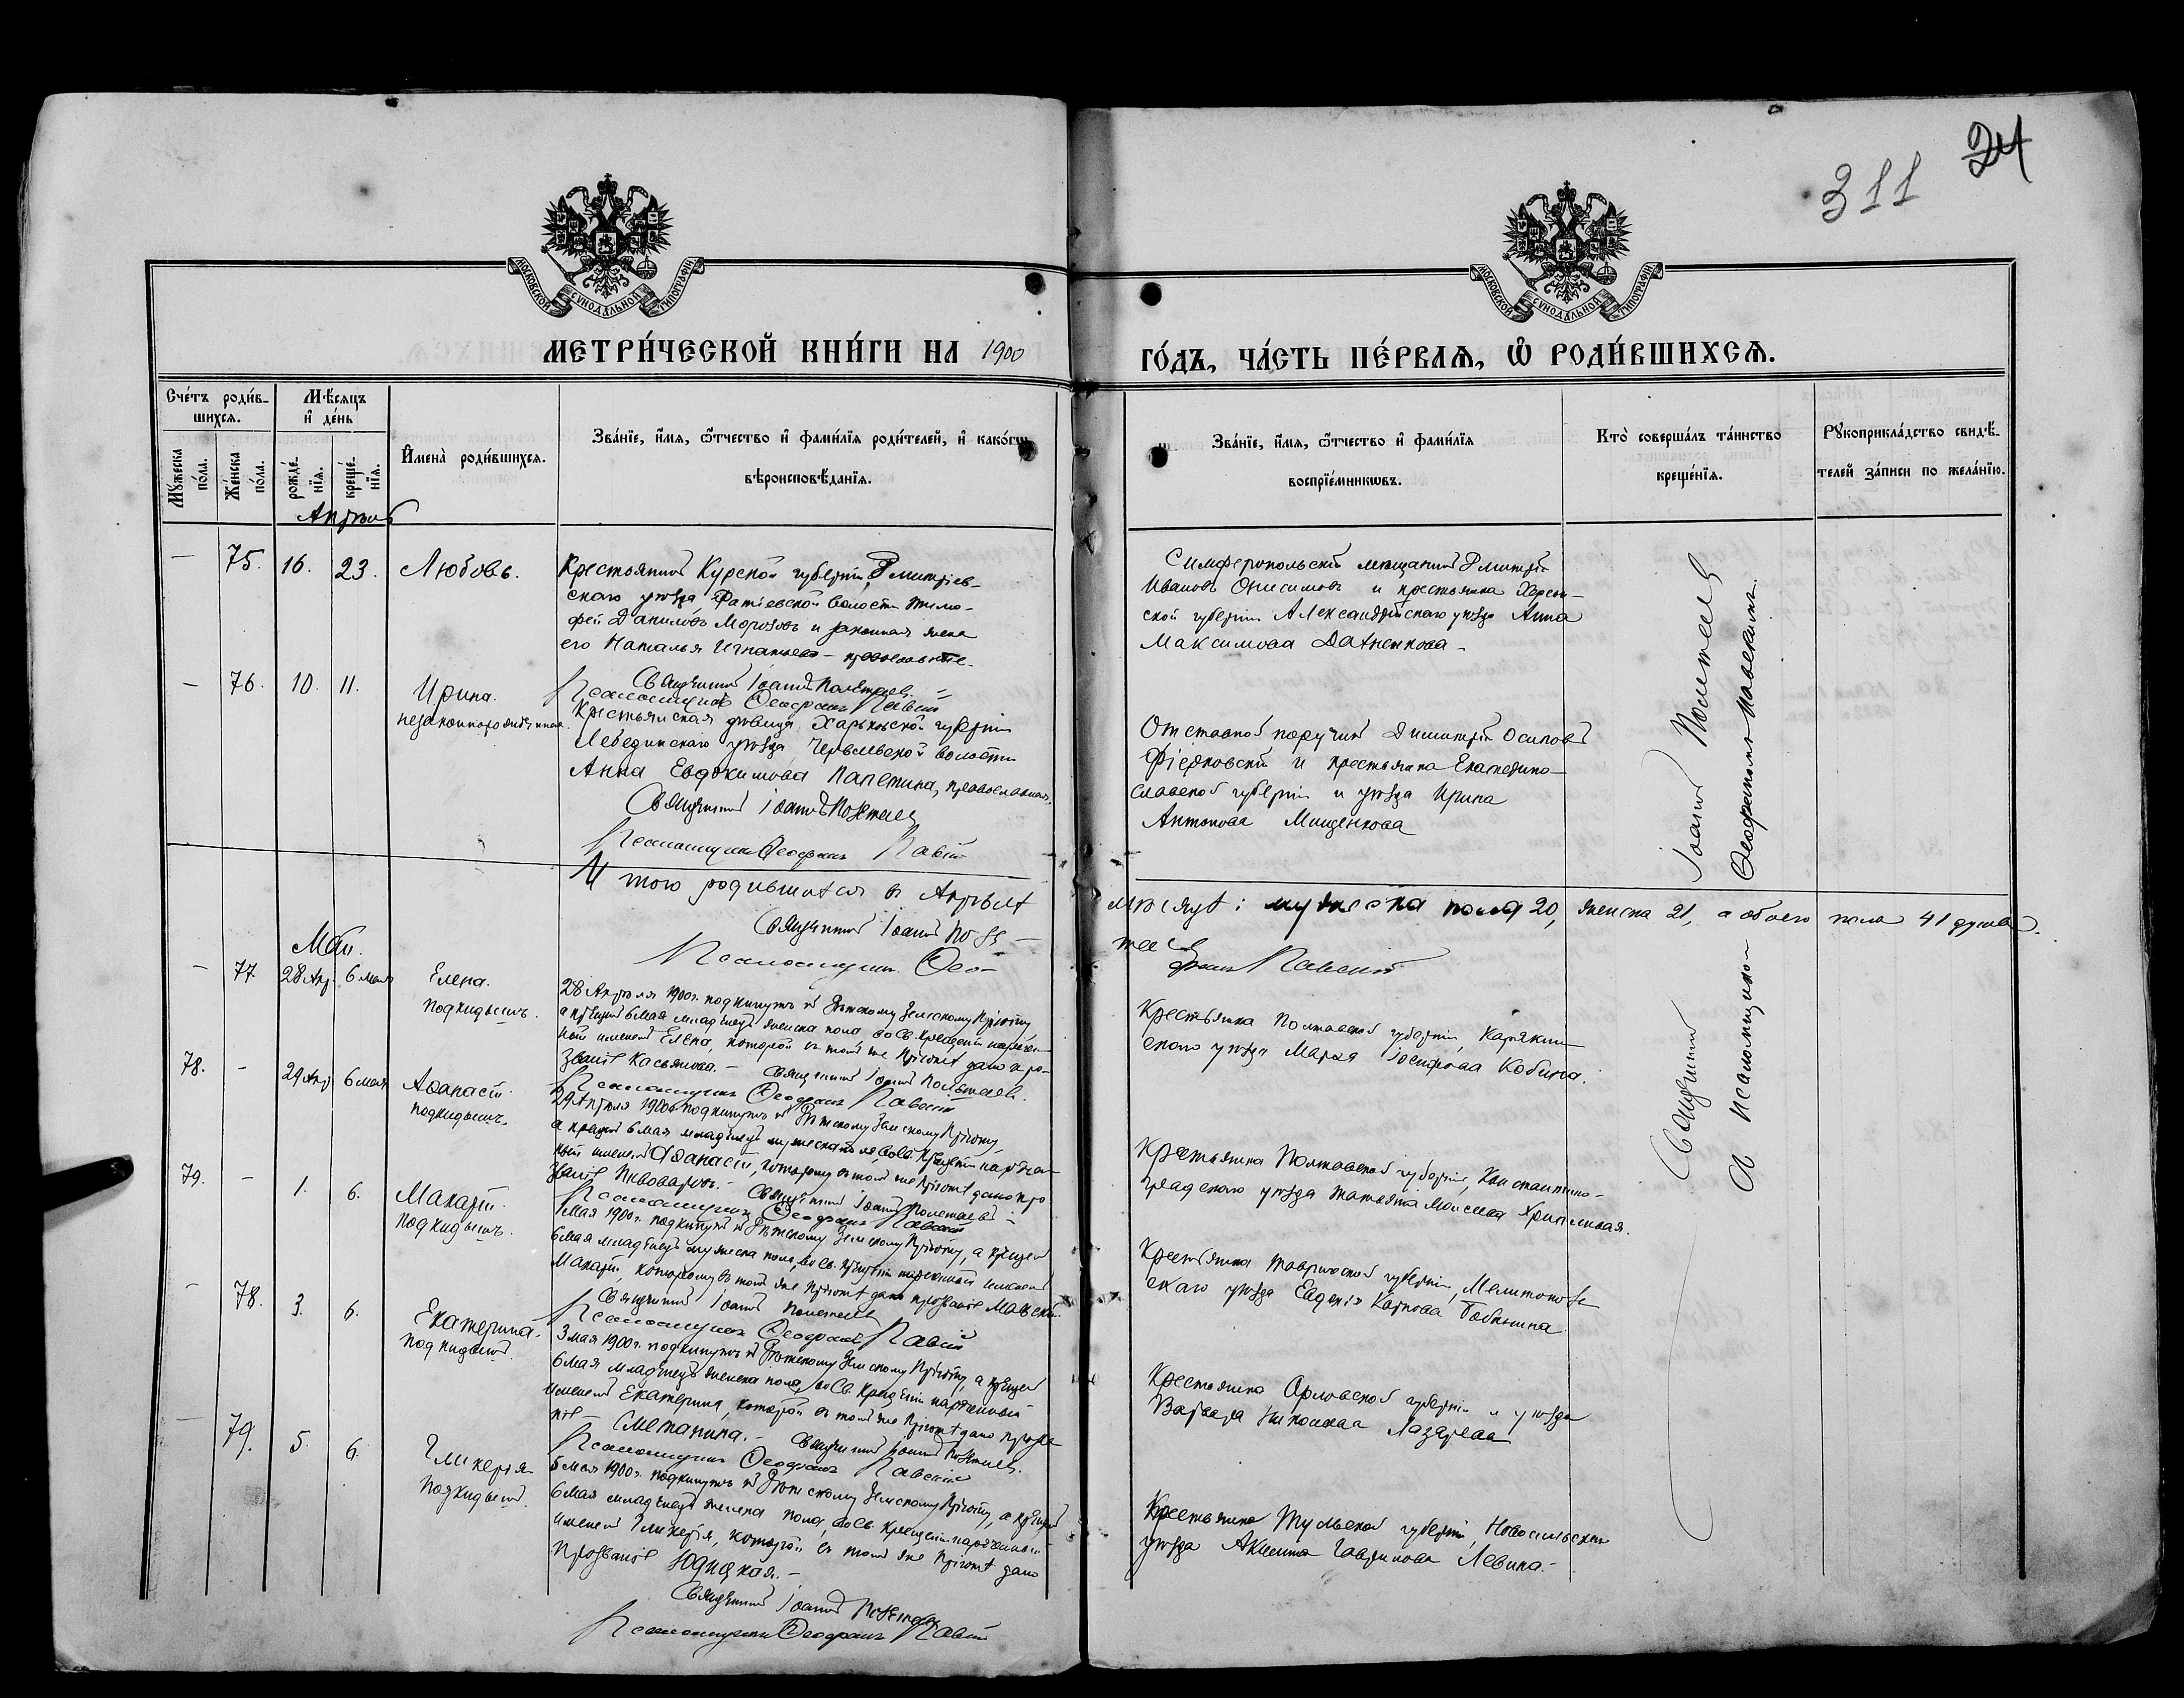 311 24
МОСКОВСКОЙ СѴНОДАЛЬНОЙ ТИПОГРАФІИ
МОСКОВСКОЙ СѴНОДАЛЬНОЙ ТИПОГРАФІИ
МЕТРИ́ЧЕСКОЙ КНИ́ГИ НА 1900
ГО́ДЪ, ЧА́СТЬ ПЕ́РВАѦ, Ѿ РОДИ́ВШИХСѦ.
Сче́тъ роди́в-
шихсѧ.
Мꙋ́жеска по́ла.
Же́нска по́ла.
Мѣ́сѧцъ
и҆ де́нь
рожде́-нїѧ.
креще́-нїѧ.
И҆мена̀ роди́вшихсѧ.
Зва́нїе, и҆́мѧ, ѻ҆́тчество и҆ фами́лїѧ роди́телей, и҆ како́гѡ
вѣроисповѣ́данїѧ.
Зва́нїе, и҆́мѧ, ѻ҆́тчество и҆ фами́лїѧ
воспрїе́мникѡвъ.
Кто̀ соверша́лъ та́инство
креще́нїѧ.
Рꙋкоприкла́дство свидѣ́-
телей за́писи по жела́нїю.
Апрѣль
— 75. 16. 23. Любовь.
Крестьянинъ Курской губерніи, Дмитріев-
скаго уѣзда, Фатіевской волости Тимо-
фей Даниловъ Морозовъ и законная жена
его Наталья Игнатьева — православные.
Священникъ Іоаннъ Полетаевъ
Псаломщикъ Ѳеофанъ Павскій
Симферопольскій мѣщанинъ Дмитрій
Ивановъ Онисимовъ и крестьянка Херсон-
ской губерніи Александрійскаго уѣзда Анна
Максимова
— 76. 10. 11. Ирина.
незаконнорожденная.
Крестьянская дѣвица Харьковской губерніи
Лебединскаго уѣзда, волости
Анна Евдокимова Папетина, православная.
Священникъ Іоаннъ Полетаевъ
Псаломщикъ Ѳеофанъ Павскій
Отставной поручикъ Димитрій Осиповъ
и крестьянка Екатерино-
славской губерніи и уѣзда Ирина
Антонова Мищенкова
И того родившихся въ Апрѣлѣ мѣсяцѣ: мужеска пола 20, женска 21, а обоего пола 41 душа.
Священникъ Іоаннъ Поле-таевъ
Псаломщикъ Ѳео-фанъ Павскій
Май.
— 77 28 Апр. 6 мая Елена.
подкидышъ.
28 Апрѣля 1900 г. подкинутъ къ Дѣтскому Земскому Пріюту,
а крещенъ 6 Мая младенецъ женска пола, во Св. Крещеніи наречен-
ный именемъ Елена, которой въ томъ же Пріютѣ дано про-
званіе Касьянова. — Священникъ Іоаннъ Полетаевъ.
Псаломщикъ Ѳеофанъ Павскій
Крестьянка Полтавской губерніи,
скаго уѣзда Марья Іосифова Кобина.
78. — 29 Апр. 6 мая Аѳанасій.
подкидышъ.
29 Апрѣля 1900 г. подкинутъ къ Дѣтскому Земскому Пріюту,
а крещенъ 6 мая младенецъ мужеска пола, во Св. Крещеніи наречен-
ный именемъ Аѳанасій, которому въ томъ же Пріютѣ дано про-
званіе Пивоваровъ. — Священникъ Іоаннъ Полетаевъ
Псаломщикъ Ѳеофанъ Павскій
Крестьянка Полтавской губерніи, Константино-
градскаго уѣзда Татьяна Моисеева
79. — 1. 6. Макарій.
подкидышъ.
1 Мая 1900 г. подкинутъ къ Дѣтскому Земскому Пріюту, а крещенъ
6 мая младенецъ мужеска пола, во Св. Крещеніи нареченный именемъ
Макарій, которому въ томъ же Пріютѣ дано прозваніе Майскій.
Священникъ Іоаннъ Полетаевъ
Псаломщикъ Ѳеофанъ Павскій
Крестьянка Таврической губерніи, Мелитополь-
скаго уѣзда Евдокія Карпова
— 78. 3. 6. Екатерина.
подкидышъ.
3 мая 1900 г. подкинутъ къ Дѣтскому Земскому Пріюту, а крещенъ
6 Мая младенецъ женска пола, во Св. Крещеніи нареченный
именемъ Екатерина, которой въ томъ же Пріютѣ дано прозва-
ніе — Сметанина. — Священникъ Іоаннъ Полетаевъ.
Псаломщикъ Ѳеофанъ Павскій
Крестьянка Орловской губерніи и уѣзда
Варвара Николаева Лазарева
— 79. 5. 6. Гликерія
подкидышъ.
5 мая 1900 г. подкинутъ къ Дѣтскому Земскому Пріюту, а крещенъ
6 мая младенецъ женска пола, во Св. Крещеніи нареченный
именемъ Гликерія, которой въ томъ же Пріютѣ дано
прозваніе Юдицкая. —
Священникъ Іоаннъ Полетаевъ
Псаломщикъ Ѳеофанъ Павскій
Крестьянка Тульской губерніи, Новосильскаго
уѣзда Акилина Гаврилова Левина. —
Священникъ Іоаннъ Полетаевъ
съ псаломщикомъ Ѳеофаномъ Павскимъ.